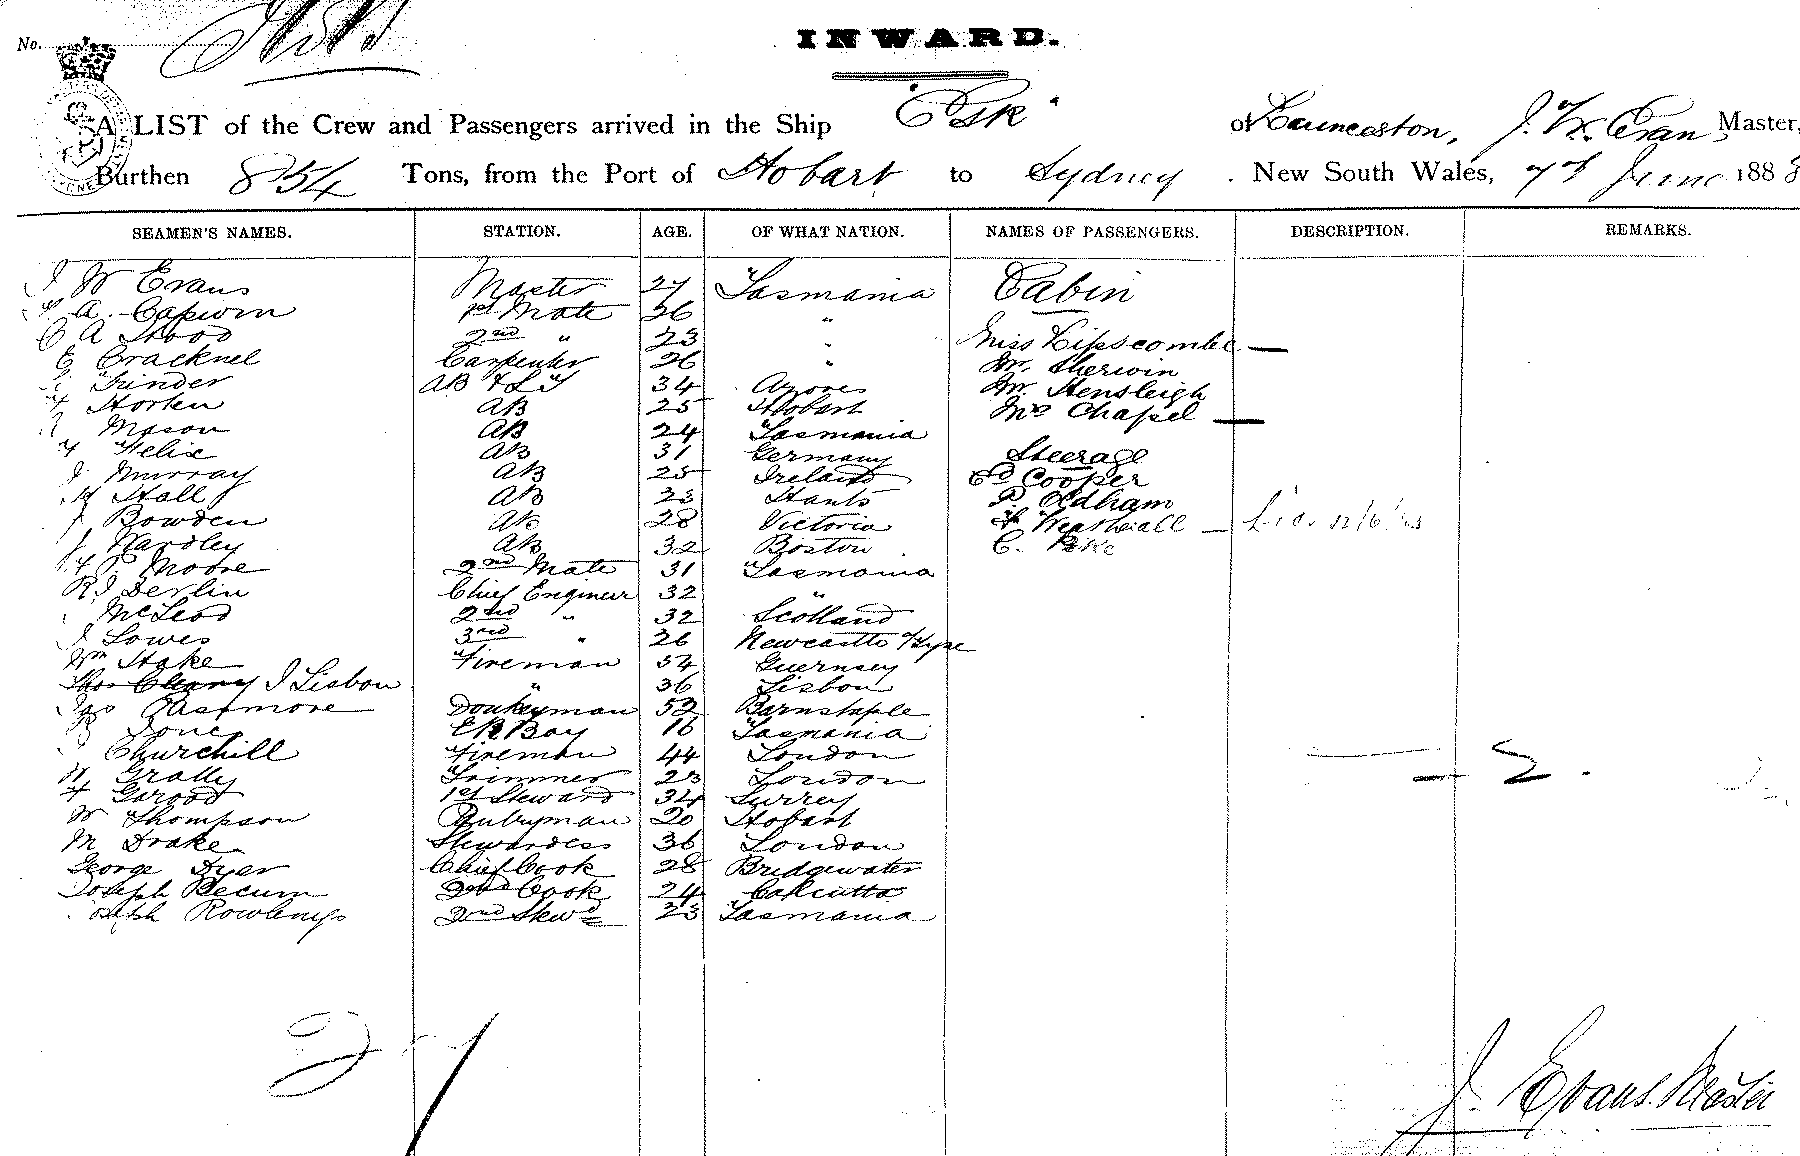 No.
INWARD.
A LIST of the Crew and Passengers arrived in the Ship "Esk" of Launceston, J. W. Evans Master,
Burthen 854 Tons, from the Port of Hobart to Sydney. New South Wales, 7th June 1888
SEAMEN'S NAMES. STATION. AGE. OF WHAT NATION. NAMES OF PASSENGERS. DESCRIPTION. REMARKS.
J W Evans Master 27 Tasmania Cabin
A. Capurn 1st Mate 36 "
C A Stood 2nd " 23 " Miss Lipscombe —
E Cracknel Carpenter 26 " Mr. Sherwin
Trinder AB & LT 34 Azores Mr. Hensleigh
Horten AB 25 Hobart Mrs Chapel —
Mason AB 24 Tasmania
Felix AB 31 Germany Steerage
J Murray AB 25 Ireland Ed Cooper
Hall AB 23 Hants P. Oldham
J. Bowden AB 28 Victoria Weatherall —
J. Wardley AB 32 Boston C. Pike
Moore 2nd Mate 31 Tasmania
R J Devlin Chief Engineer 32 "
McLeod 2nd " 32 Scotland
J Lowes 3rd " 26 Newcastle
Wm Stake Fireman 34 Guernsey
Thos Cleary J Lisbon " 36 Lisbon
Passmore Donkeyman 52 Barnstaple
ER Boy 16 Tasmania
Churchill Fireman 44 London
W Grally Trimmer 23 London
Garood 1st Steward 34 Surrey
W Thompson Pantryman 20 Hobart
M Drake Stewardess 36 London
George Dyer Chief Cook 28 Bridgewater
Joseph Becum 2nd Cook 24 Calcutta
Rowlings 2nd Stewd 23 Tasmania
J. Evans. Master